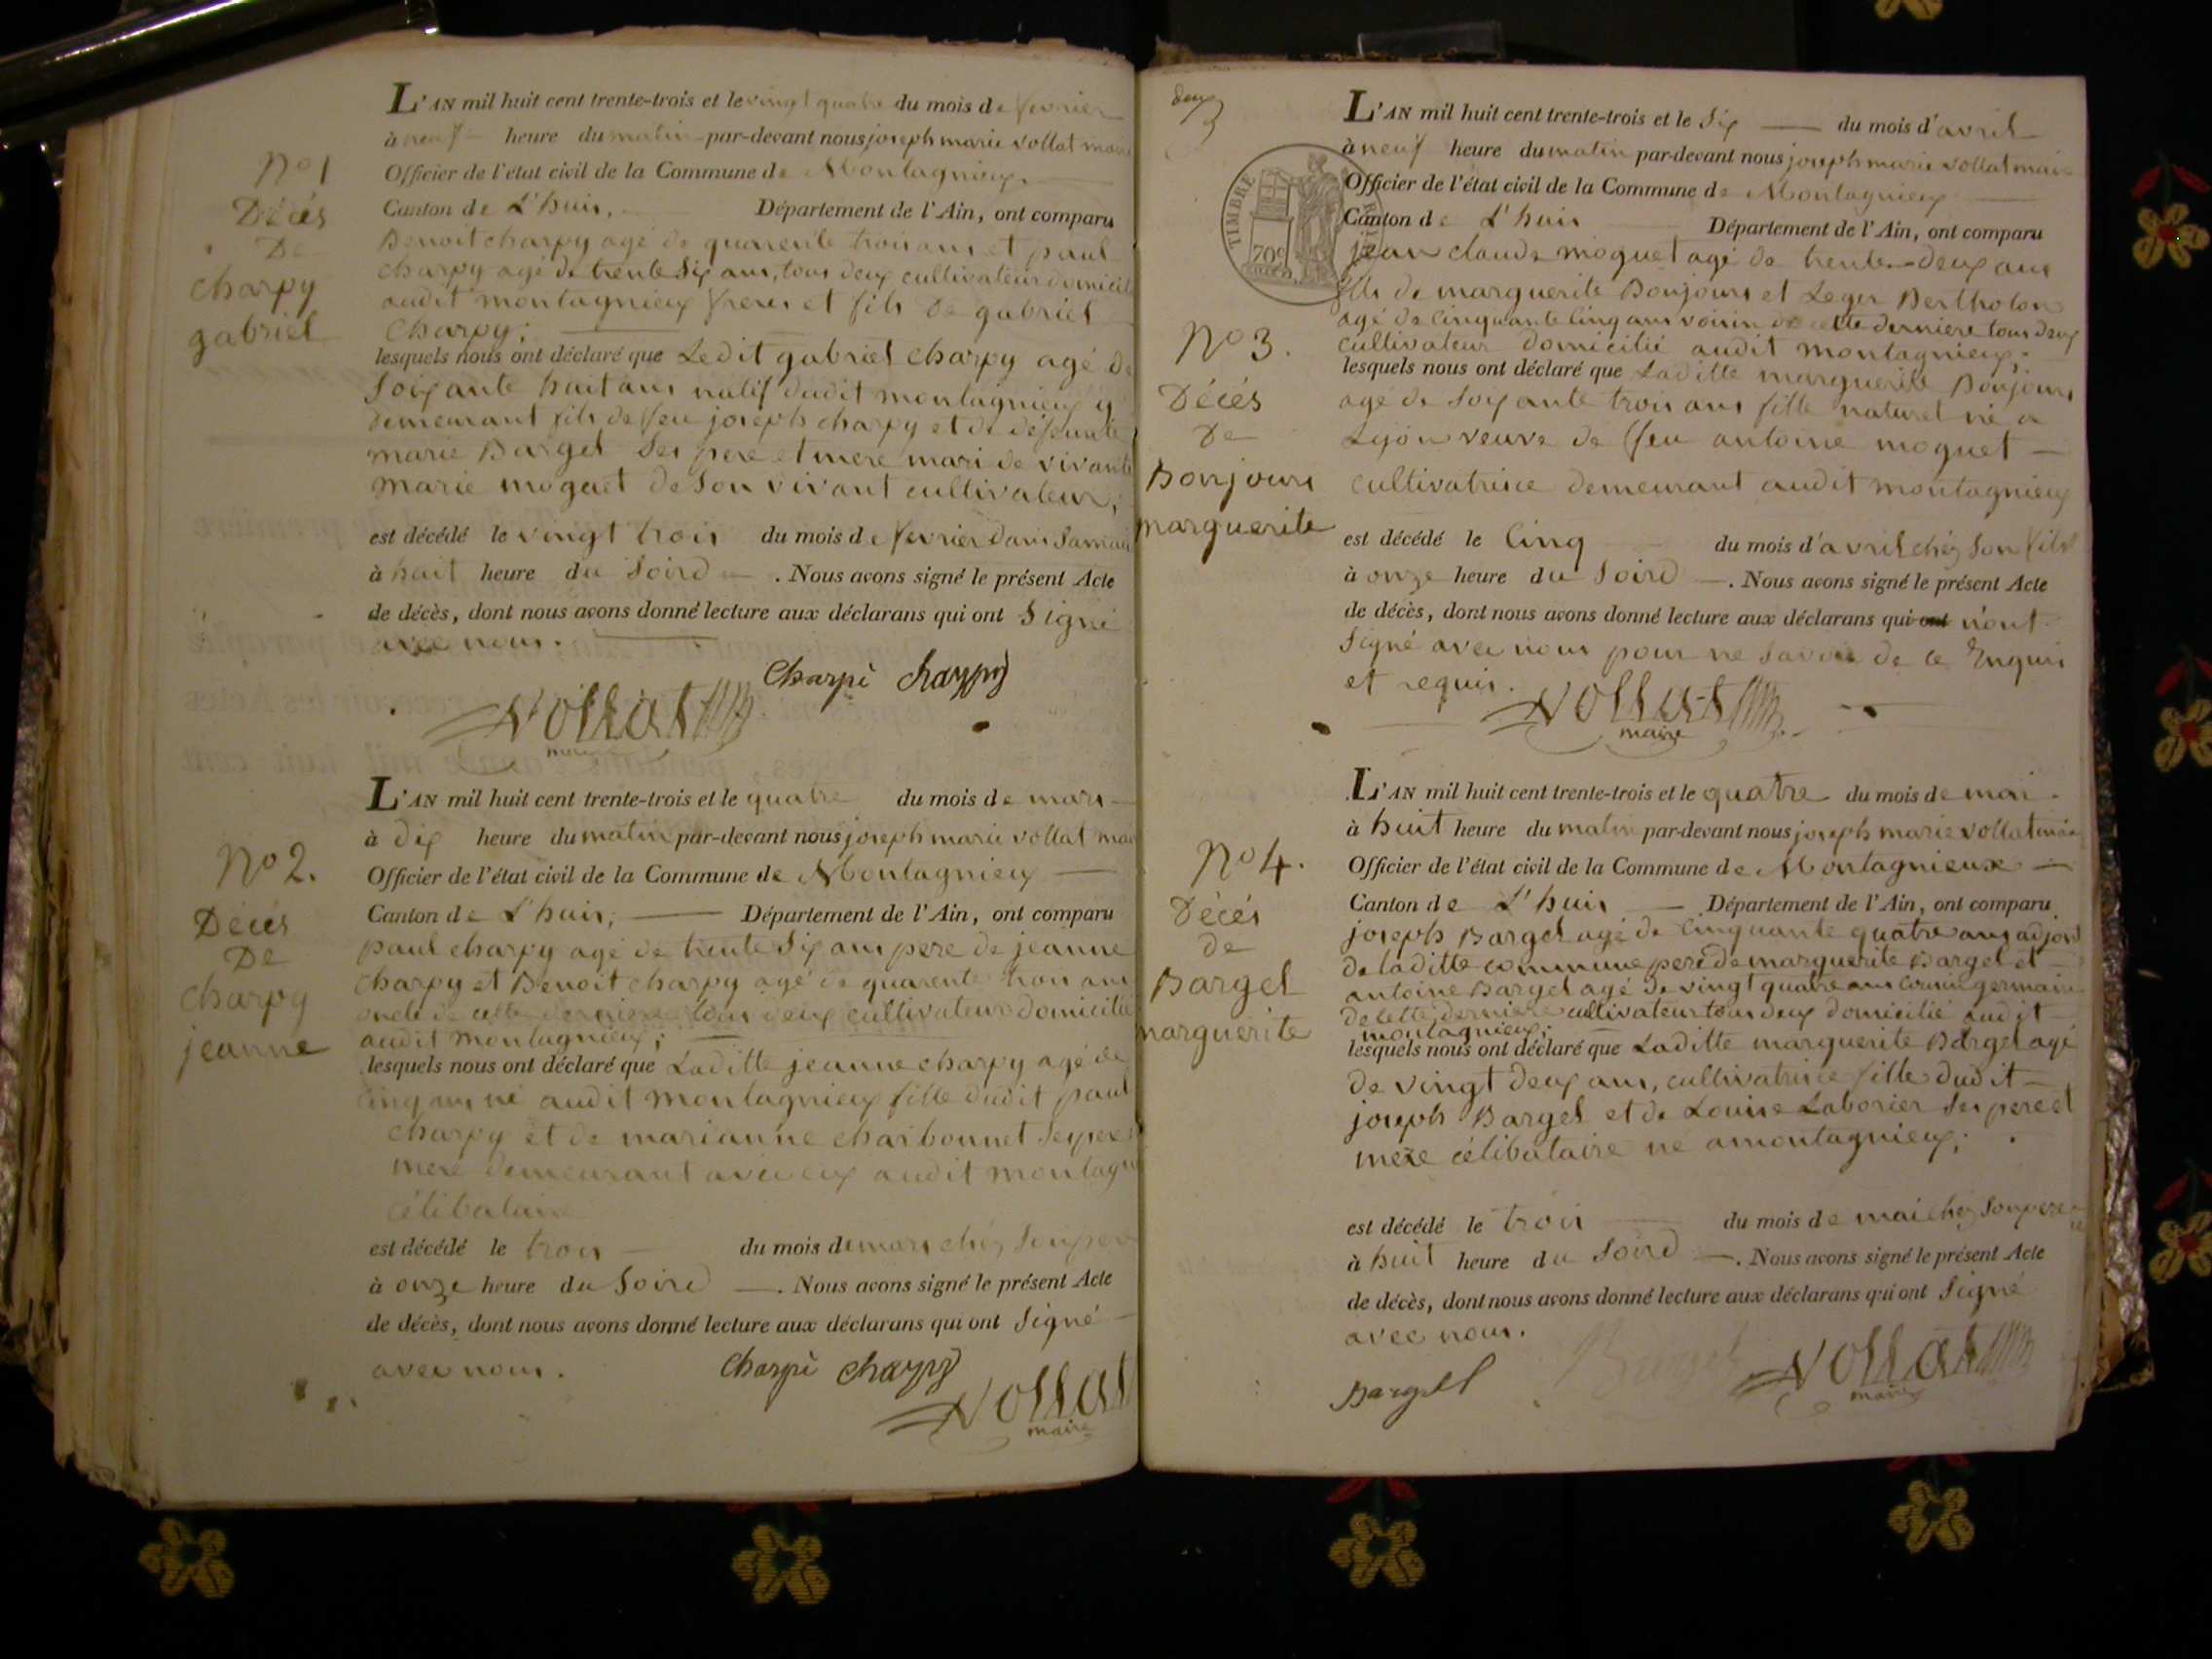 N° 1
Décés
De
Charpy
gabriel
L'AN mil huit cent trente-trois et le vingt quatre du mois de fevrier
à neuf heure du matin par-devant nous joseph marie vollat maire
Officier de l'état civil de la Commune de Montagnieux
Canton de L'huis, Département de l'Ain, ont comparu
Benoit charpy agé de quarente trois ans et paul
charpy agé de trente six ans, tous deux cultivateur domicilié
audit montagnieux freres et fils de gabriel
Charpy;
lesquels nous ont déclaré que Ledit gabriel charpy agé de
soixante huit ans natif dudit montagnieux y
demeurant fils de feu joseph charpy et de défeunte
marie Bargel ses pere et mere mari de vivante
marie moguet de son vivant cultivateur;
est décédé le vingt trois du mois de fevrier dans sa
à huit heure du soird. Nous avons signé le présent Acte
de décès, dont nous avons donné lecture aux déclarans qui ont signé
avec nous.
Charpi charpy
Vollat
maire
N° 2.
Décés
De
Charpy
jeanne
L'AN mil huit cent trente-trois et le quatre du mois de mars
à dix heure du matin par-devant nous joseph marie vollat maire
Officier de l'état civil de la Commune de Montagnieux
Canton de L'huis; Département de l'Ain, ont comparu
paul charpy agé de trente six ans pere de jeanne
charpy et Benoit charpy agé de quarente trois ans
oncle de cette derniere tous deux cultivateur domicilié
audit montagnieux;
lesquels nous ont déclaré que Laditte jeanne charpy agé de
cinq ans né audit montagnieux fille dudit paul
charpy et de marianne charbonnet ses pere
mere demeurant avec eux audit montagnieux
célibataire
est décédé le trois du mois de mars chéz son pere
à onze heure du soird. Nous avons signé le présent Acte
de décès, dont nous avons donné lecture aux déclarans qui ont signé
avec nous.
Charpi charpy
Vollat
maire
deux
TIMBRE
70c
N° 3.
Décés
De
Bonjours
marguerite
L'AN mil huit cent trente-trois et le six du mois d'avril
à neuf heure du matin par-devant nous joseph marie vollat maire
Officier de l'état civil de la Commune de Montagnieux
Canton de L'huis Département de l'Ain, ont comparu
jean claude moguet agé de trente-deux ans
fils de marguerite Bonjours et Leger Bertholon
agé de cinquante cinq ans voisin de cette derniere tous deux
cultivateur domicilié audit montagnieux;
lesquels nous ont déclaré que Laditte marguerite Bonjours
agé de soixante trois ans fille naturel né a
Lyon veuve de feu antoine moguet
cultivatrice demeurant audit montagnieux
est décédé le cinq du mois d'avril chéz son fils
à onze heure du soird. Nous avons signé le présent Acte
de décès, dont nous avons donné lecture aux déclarans qui ont n'ont
signé avec nous pour ne savoir de ce Enquis
et requis.
Vollat
maire
N° 4.
Décés
de
Bargel
marguerite
L'AN mil huit cent trente-trois et le quatre du mois de mai
à huit heure du matin par-devant nous joseph marie vollat maire
Officier de l'état civil de la Commune de Montagnieux
Canton de L'huis Département de l'Ain, ont comparu
joseph Bargel agé de cinquante quatre ans adjoint
de laditte commune pere de marguerite Bargel et
antoine Bargel agé de vingt quatre ans cousin germain
de cette derniere cultivateur tous deux domicilié audit
montagnieux;
lesquels nous ont déclaré que Laditte marguerite Bargel agé
de vingt deux ans, cultivatrice fille dudit
joseph Bargel et de Louise Laborier ses pere et
mere célibataire né a montagnieux;
est décédé le trois du mois de mai chéz son pere
à huit heure du soird. Nous avons signé le présent Acte
de décès, dont nous avons donné lecture aux déclarans qui ont signé
avec nous.
Bargel Bargel Vollat
maire